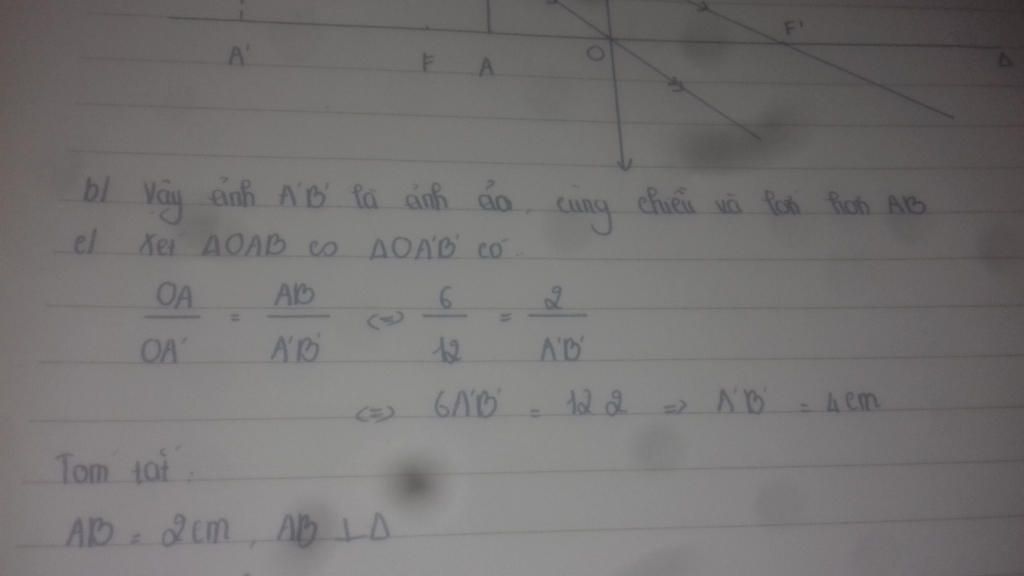 A' F A O F' Δ
b/ Vậy ảnh A'B' là ảnh ảo, cùng chiều và lớn hơn AB
c/ Xét ΔOAB có ΔOA'B' có..
OA/OA' = AB/A'B' <=> 6/12 = 2/A'B'
<=> 6A'B' = 12.2 => A'B' = 4cm
Tóm tắt:
AB = 2cm, AB ⊥ Δ